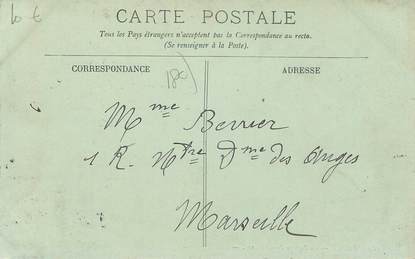 lo €
CARTE POSTALE
Tous les Pays étrangers n'acceptent pas la Correspondance au recto.
(Se renseigner à la Poste).
CORRESPONDANCE ADRESSE
180
Mme Berrier
1 R. Ntre Dme des Anges
Marseille